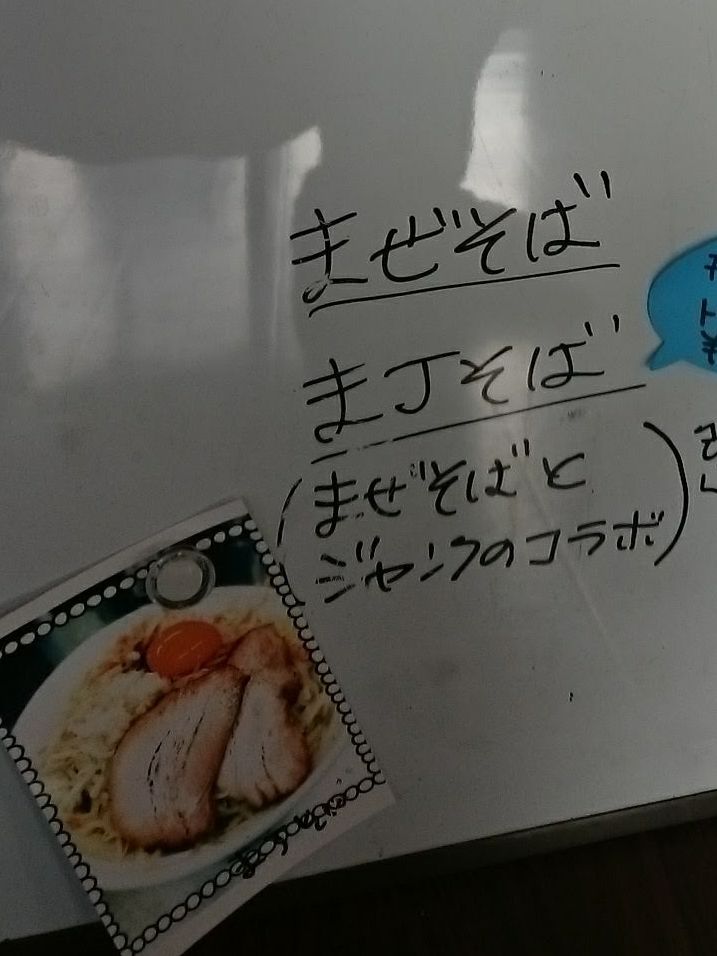 まぜそば
まJそば
(まぜそばと
ジャンクのコラボ)